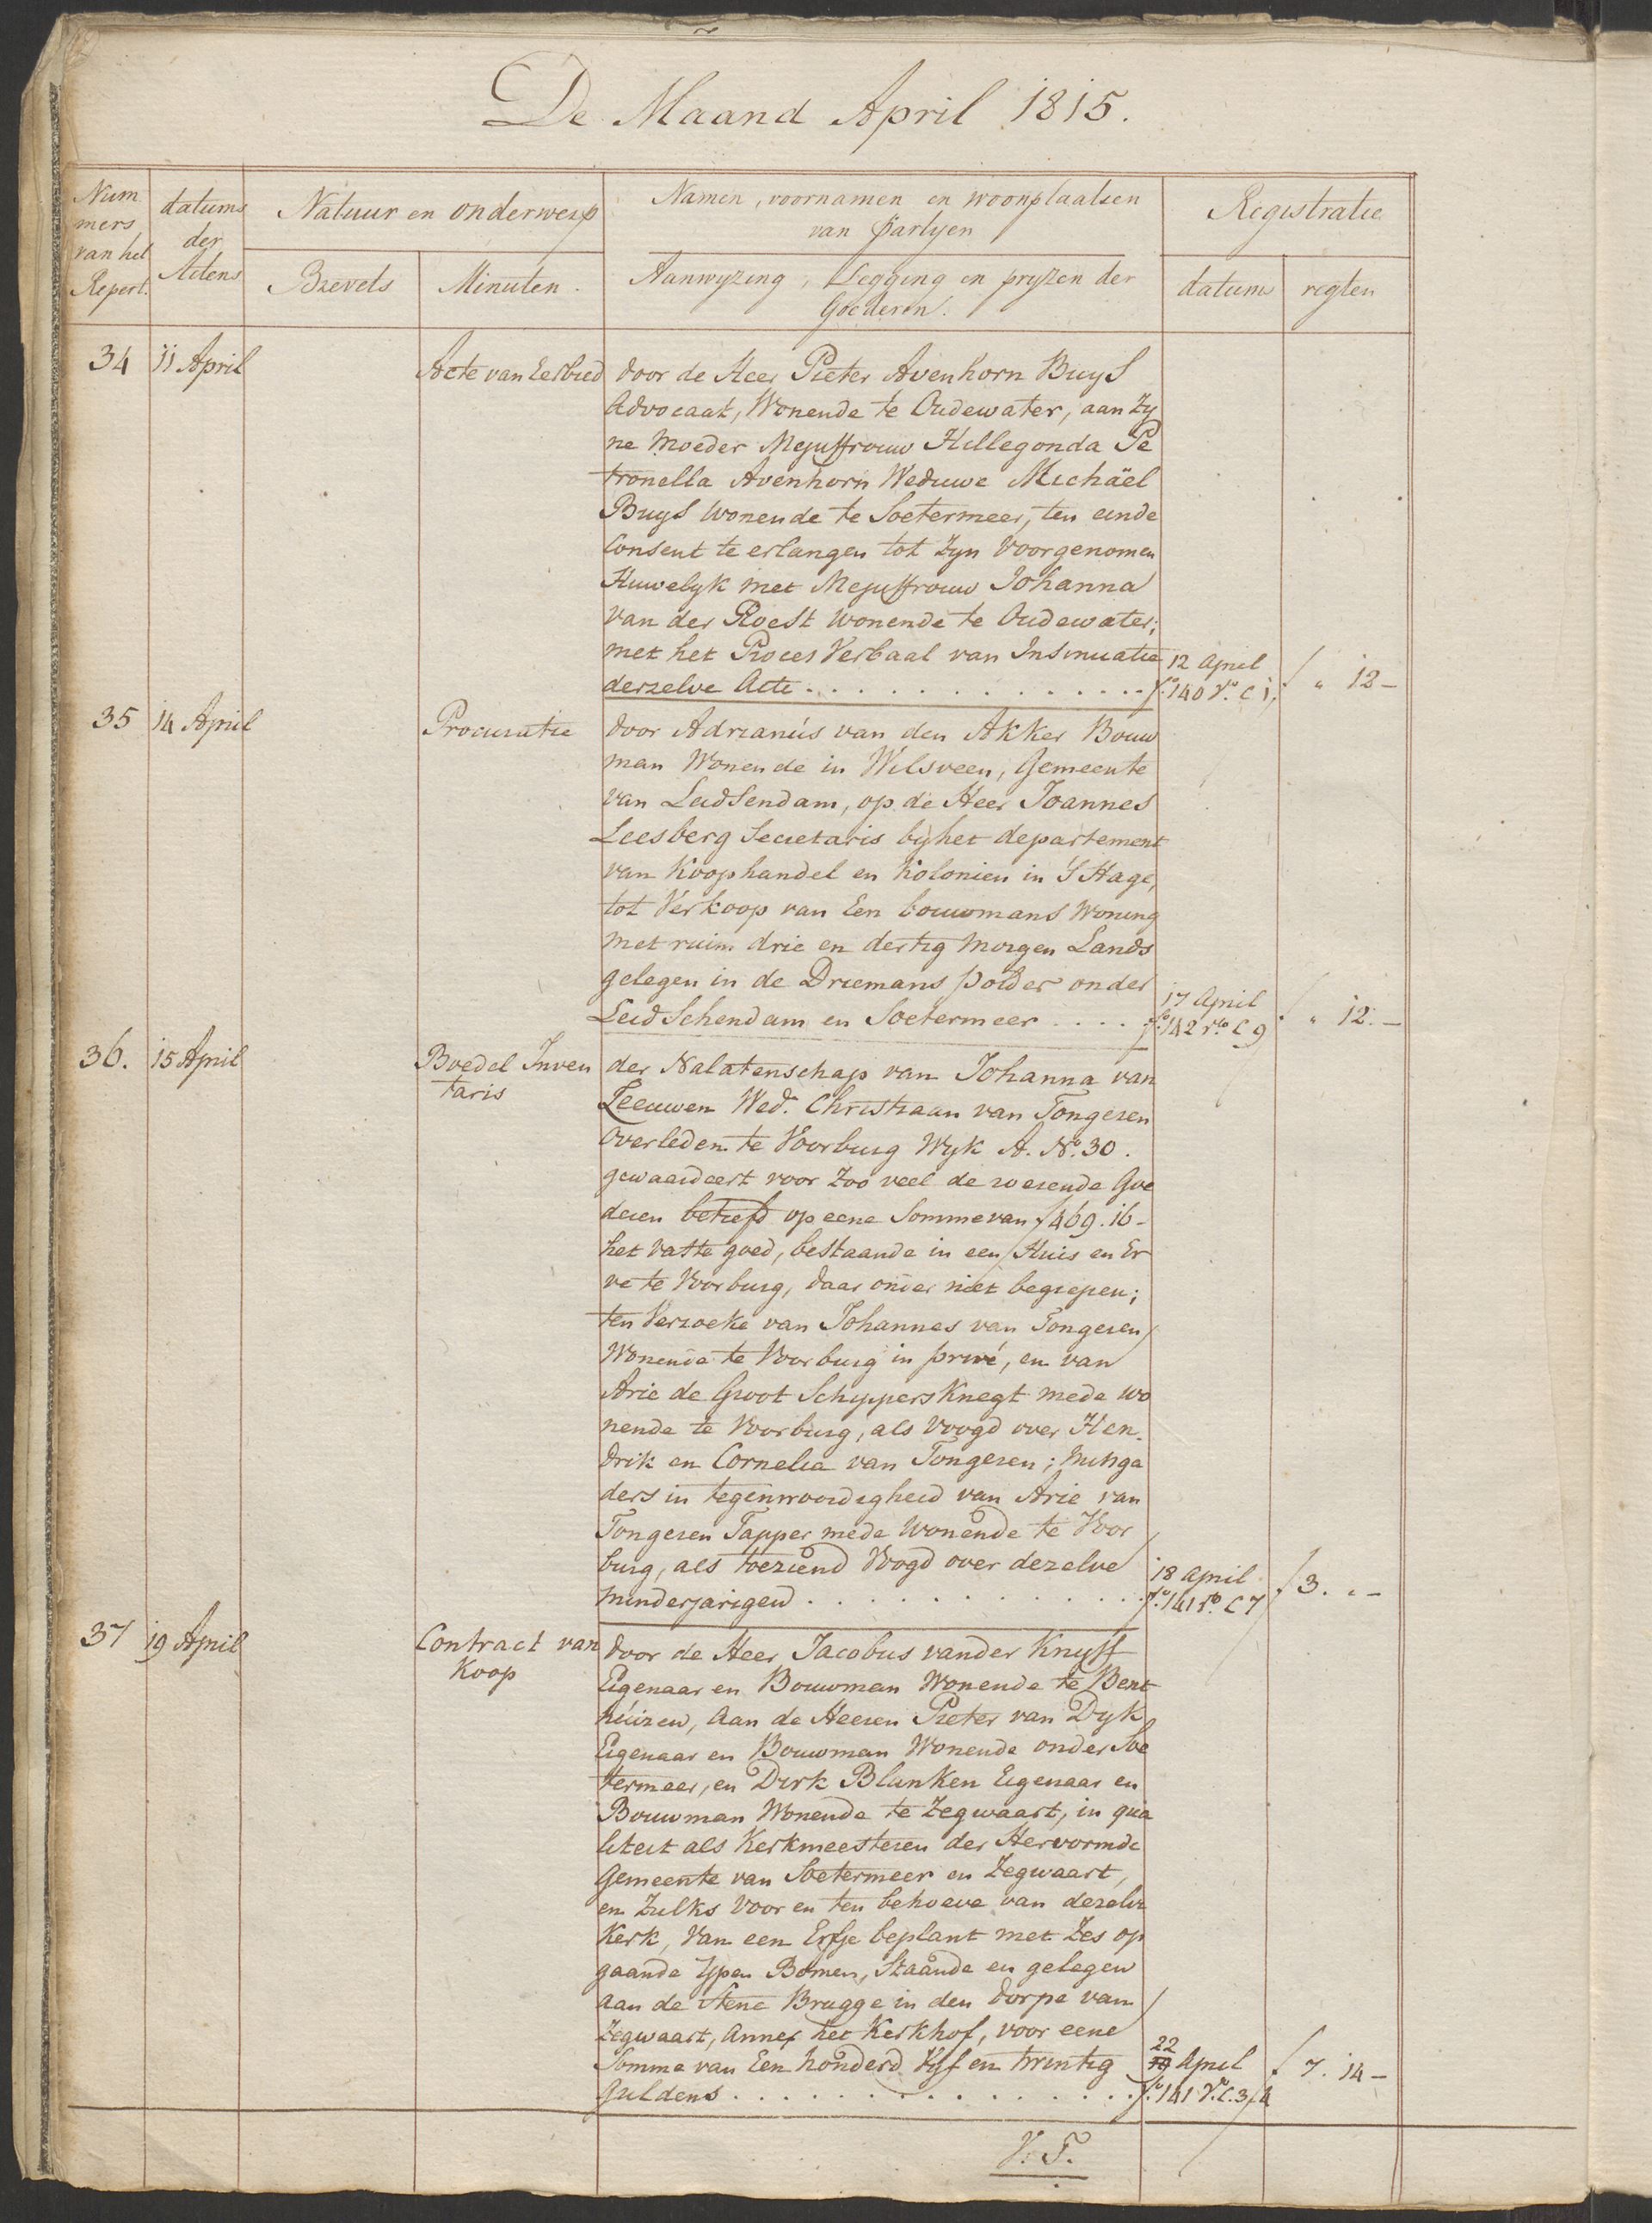 De Maand April 1815.
Nummers van het Repert.
datums der Actens
Natuur en onderwerp
Brevets
Minuten.
Namen, voornamen en woonplaatsen
van partyen
Aanwyzing, Legging en pryzen der
Goederen.
Registratie
datums
regten
34 11 April Acte van Eerbied door de Heer Pieter Avenhorn Buys
Advocaat, Wonende te Oudewater, aan Zy
ne Moeder Mejuffrouw Hillegonda Pe
tronella Avenhorn Weduwe Michäel
Buys Wonende te Soetermeer, ten einde
Consent te erlangen tot Zyn Voorgenomen
Huwelyk met Mejuffrouw Johanna
van der Roest Wonende te Oudewater;
met het Proces Verbaal van Insinuatie 12 April
derzelve Acte . . . . . . . . . . . fo. 140 Vo. C 1, f " 12 –
35 14 April Procuratie door Adrianus van den Akker Bouw
man Wonende in Wilsveen, Gemeente
van Leidsendam, op de Heer Joannes
Leesberg Secretaris by het departement
van Koophandel en Kolonien in 'S Hage,
tot Verkoop van Een bouwmans Woning
met ruim drie en dertig Morgen Lands
gelegen in de Driemans polder onder 17 April
Leidschendam en Soetermeer . . . . fo. 142 rto C 9 f " 12. –
36. 15 April Boedel Inven der Nalatenschap van Johanna van
taris Leeuwen Wed. Christiaan van Tongeren
Overleden te Voorburg Wyk A. No. 30.
gewaardeert voor Zoo veel de roerende Goe
deren betrefd op eene Somme van f 469. 16 –
het vaste goed, bestaande in een Huis en Er
ve te Voorburg, daar onder niet begrepen;
ten Verzoeke van Johannes van Tongeren
Wonende te Voorburg in privé, en van
Arie de Groot Schippers Knegt mede wo
nende te Voorburg, als Voogd over Hen-
drik en Cornelia van Tongeren;
ders in tegenwoordigheid van Arie van
Tongeren Tapper mede Wonende te Voor
burg, als toeziend Voogd over dezelve 18 April
minderjarigen . . . . . . . . . . . fo. 141 ro. C 7 f 3. " –
37 19 April Contract van door de Heer Jacobus vander Knyff
Koop Eigenaar en Bouwman Wonende te Bent
huizen, Aan de Heeren Pieter van Dyk
Eigenaar en Bouwman Wonende onder Soe
termeer, en Dirk Blanken Eigenaar en
Bouwman Wonende te Zegwaart, in qua
liteit als Kerkmeesteren der Hervormde
Gemeente van Soetermeer en Zegwaart,
en Zulks Voor en ten behoeve van dezelve
Kerk, Van een Erfje beplant met Zes op
gaande Ypen Bomen, Staande en gelegen
aan de Stene Brugge in den dorpe van
Zegwaart, Annex het Kerkhof, voor eene 22
Somma van Een honderd Vyf en twintig 19 April
Guldens . . . . . . . . . . . . . . fo. 141 Vo. C. 3/4 f 7. 14 –
V. T.